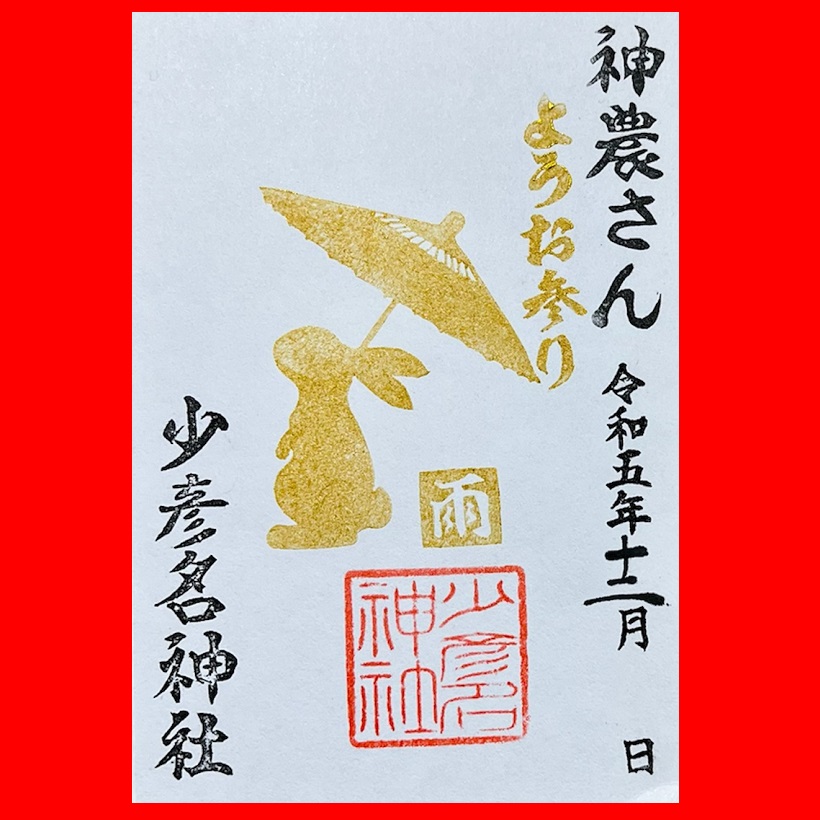 神農さん
令和五年十二月 日
ようお参り
雨
少彦名
神社
少彦名神社